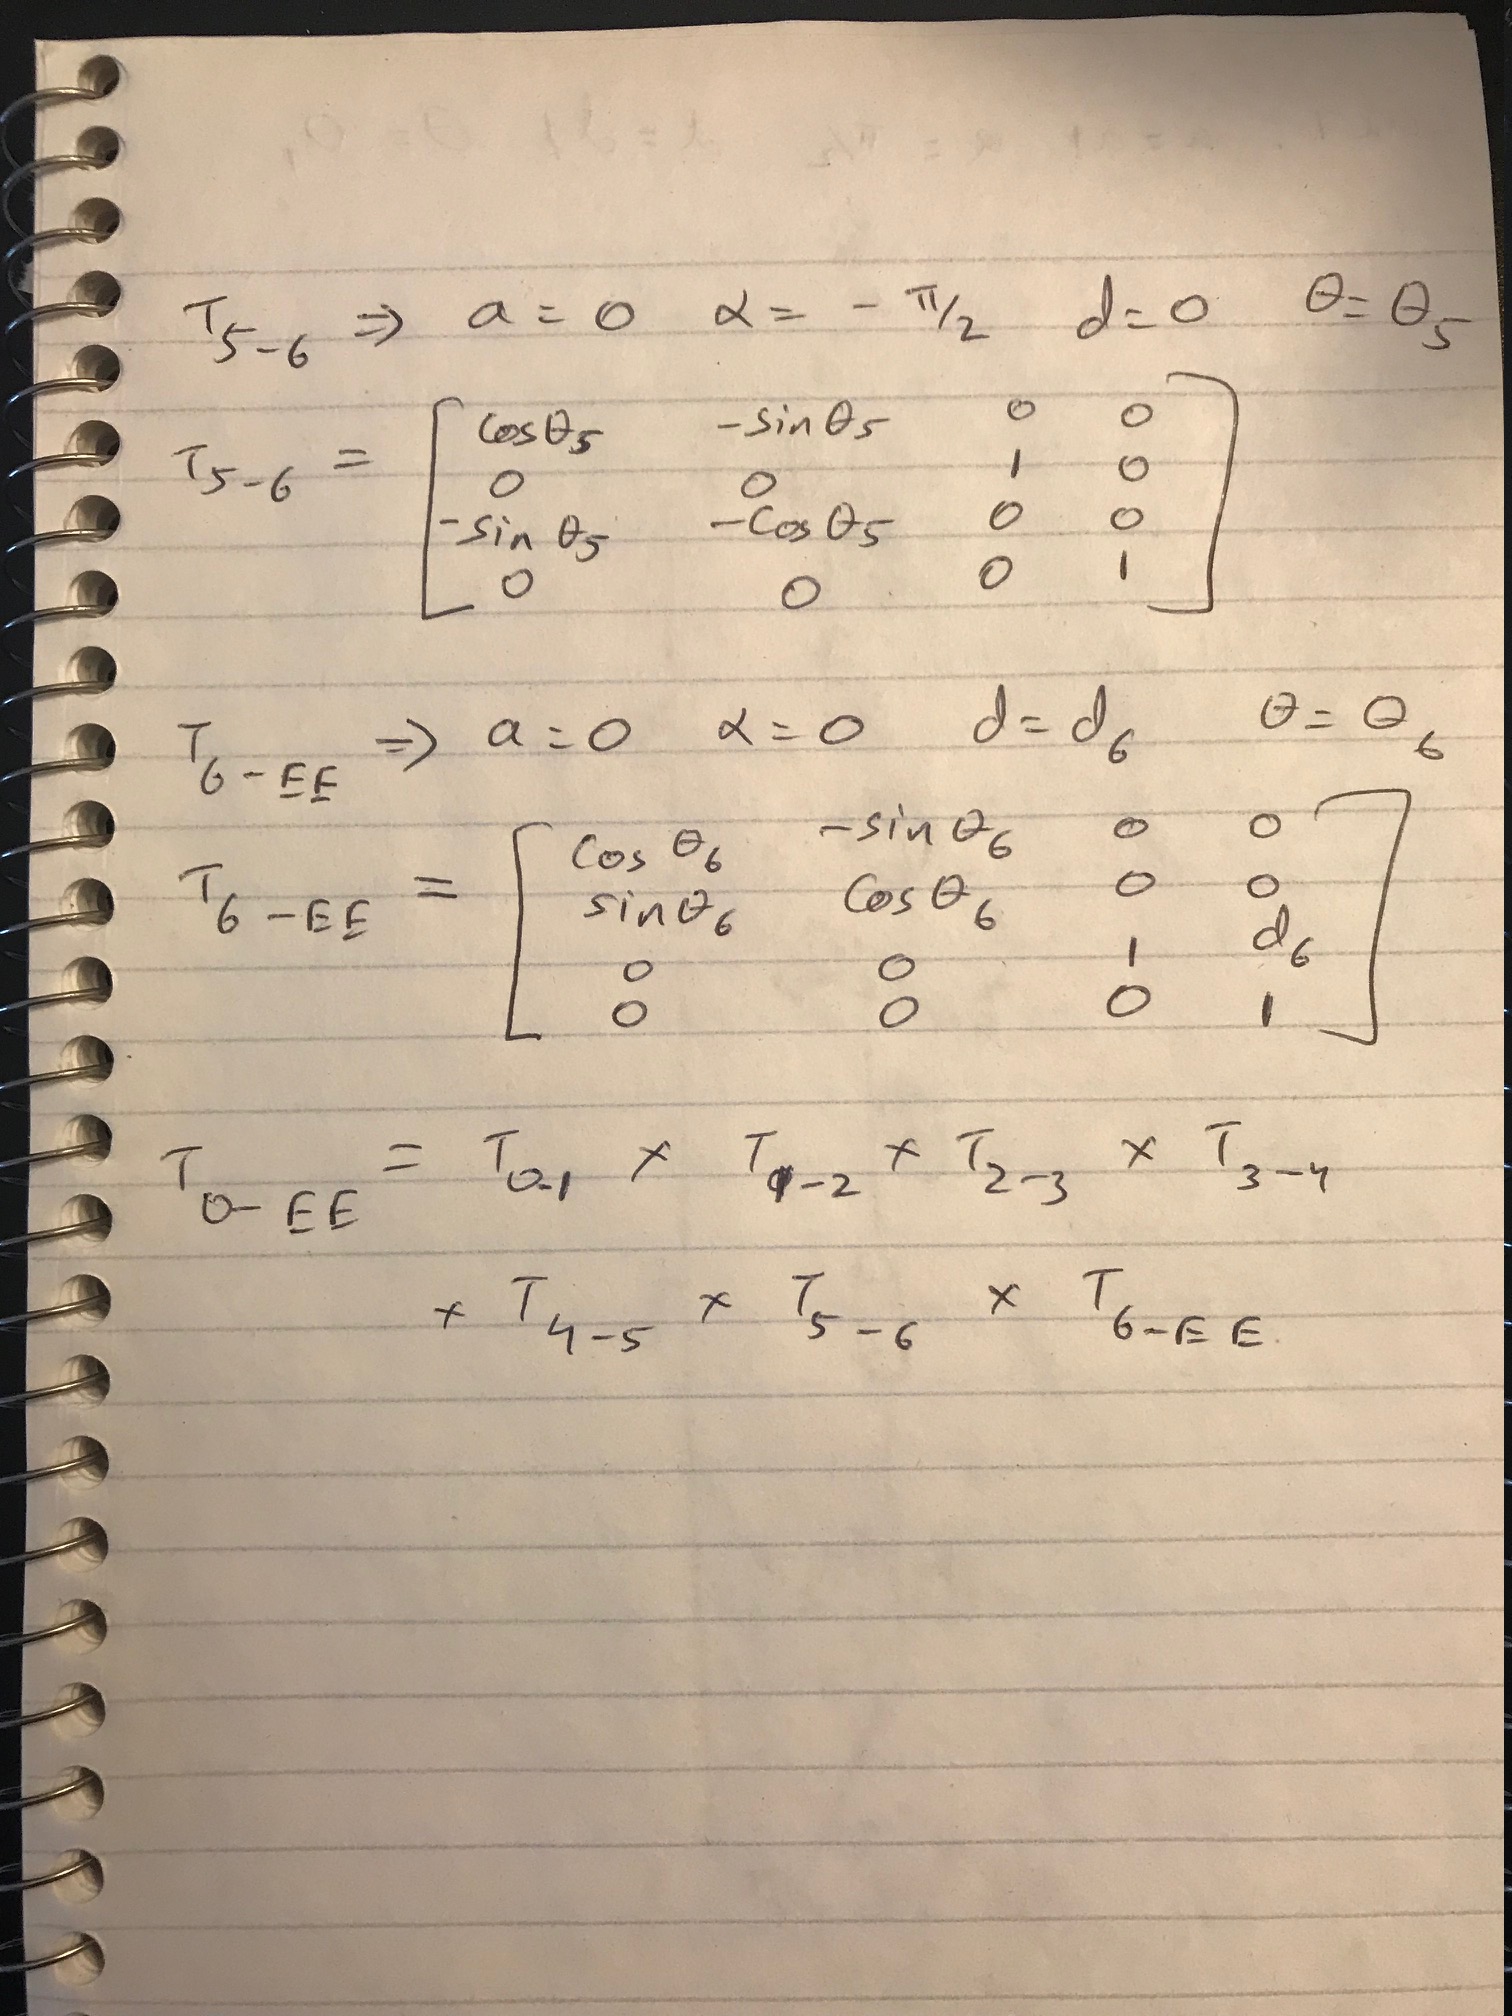 T5-6 ⇒ a = 0 α = - π/2 d = 0 θ = θ5
T5-6 = [ cosθ5 -sinθ5 0 0
0 0 1 0
-sin θ5 -cosθ5 0 0
0 0 0 1 ]
T6-EE ⇒ a = 0 α = 0 d = d6 θ = θ6
T6-EE = [ cos θ6 -sinθ6 0 0
sinθ6 cosθ6 0 0
0 0 1 d6
0 0 0 1 ]
T0-EE = T0-1 × T1-2 × T2-3 × T3-4
× T4-5 × T5-6 × T6-EE